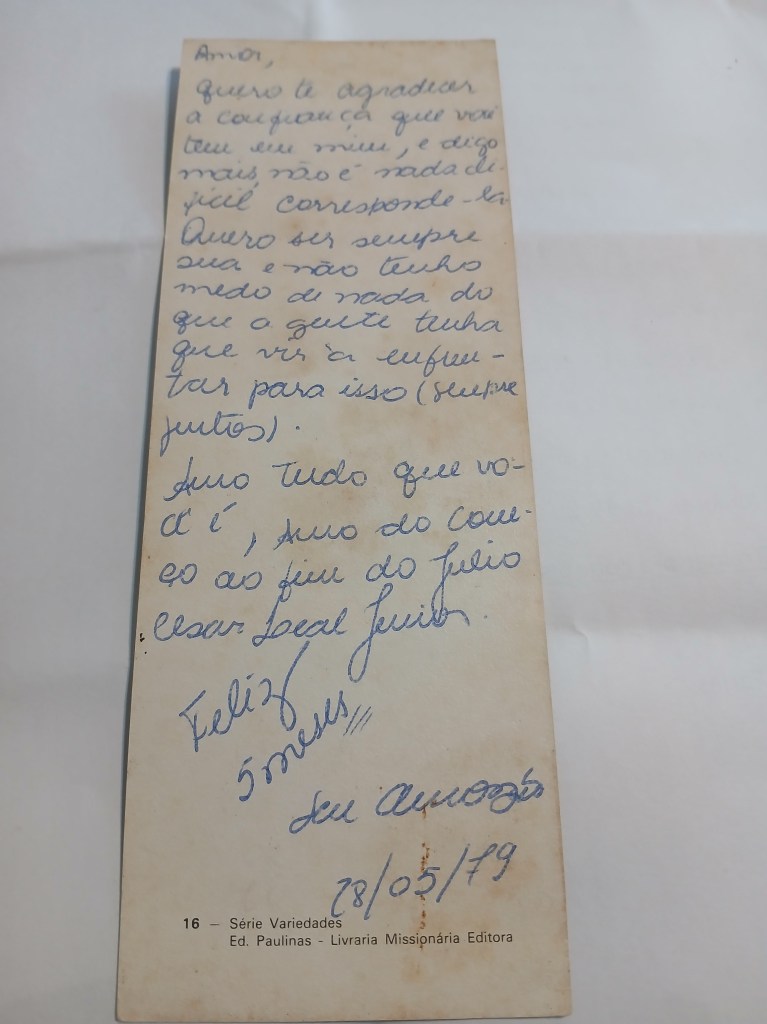 Amor,
quero te agradecer
a confiança que vai
tem em mim, e digo
mais, não é nada di-
ficil corresponde-la.
Quero ser sempre
sua e não tenho
medo de nada do
que a gente tenha
que vir à enfren-
tar para isso (sempre
juntos).
Amo tudo que vo-
cê é, Amo do come-
ço ao fim do Julio
Cesar Local Junior
Feliz
5 meses
Seu Amorzão
28/05/79
16 — Série Variedades
Ed. Paulinas - Livraria Missionária Editora